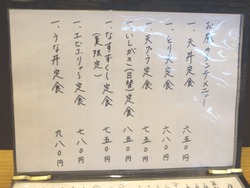 お昼のランチメニュー
一、天丼定食 六五〇円
一、とり天定食 六八〇円
一、天プラ定食 七五〇円
一、いしがき(日替)定食 八五〇円
一、なすずくし定食 七五〇円
(夏限定)
一、エビホリの〜定食 七八〇円
一、うな丼定食 九八〇円